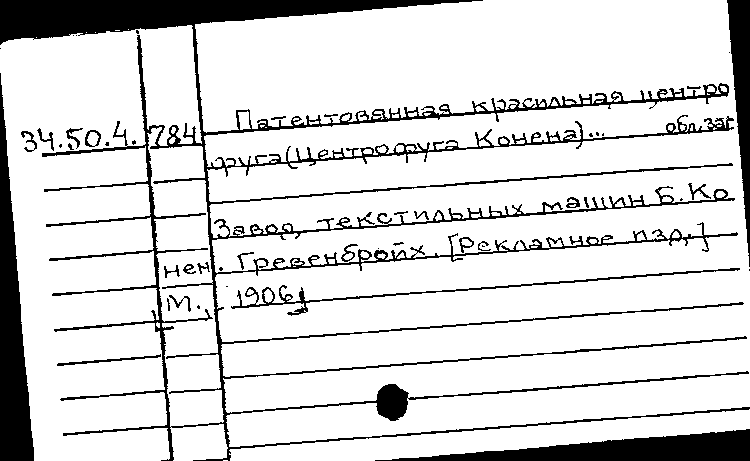 34.50.4. 784 Патентованная красильная центро
фуга (Центрофуга Конена)... обл. заг
Завод текстильных машин Б. Ко
нен. Гревенбройх. [Рекламное изд.]
М., 1906